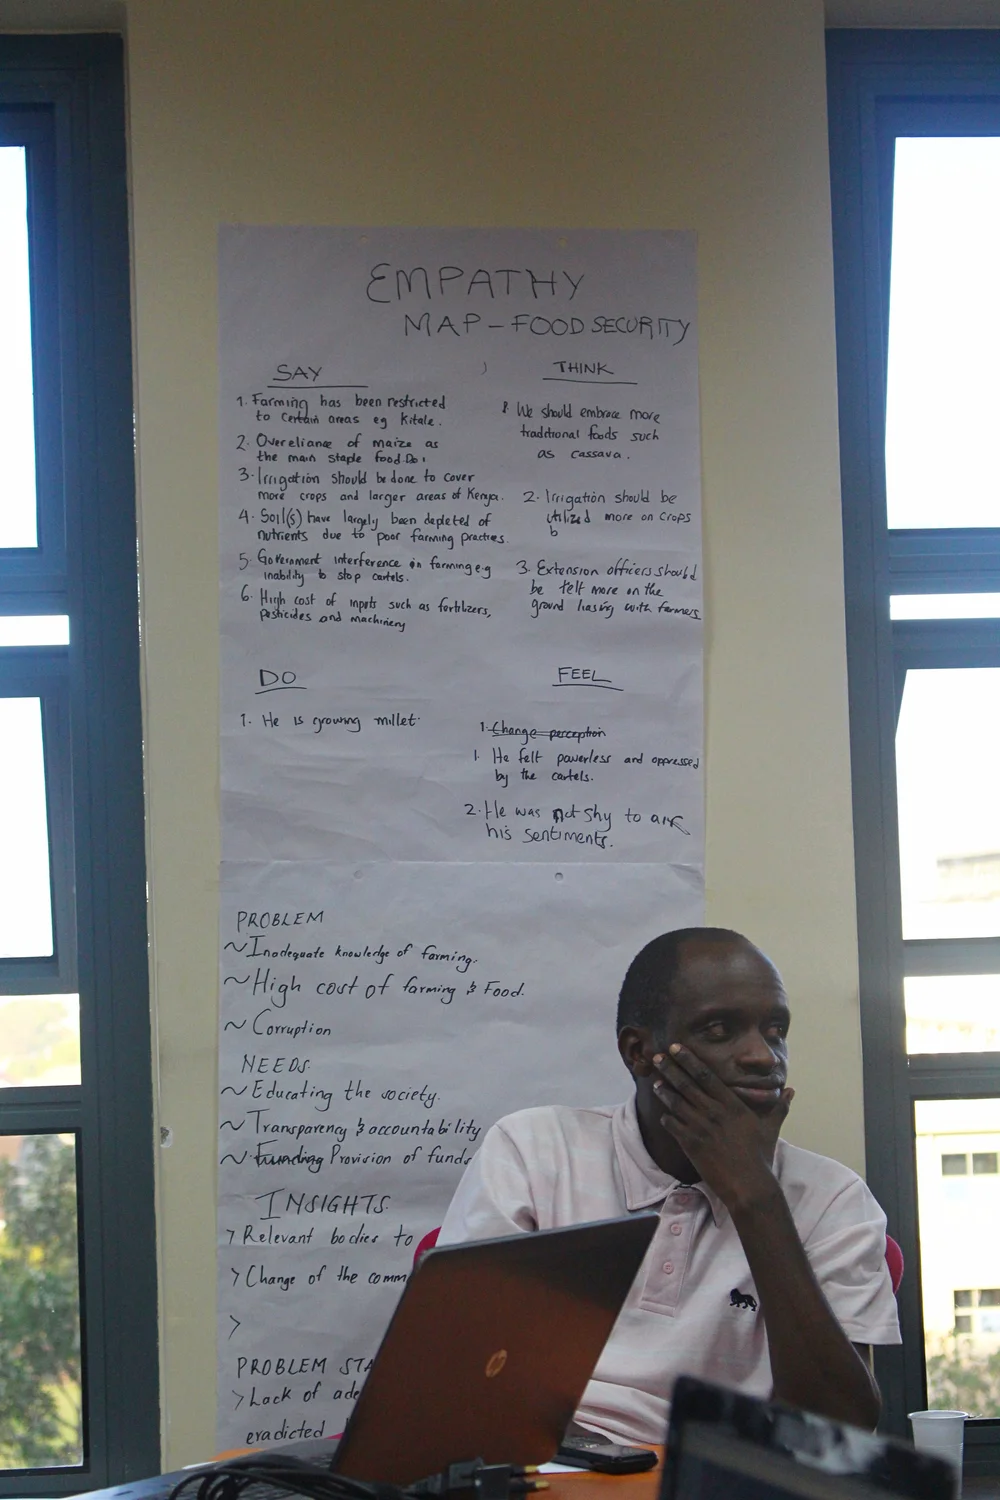 EMPATHY
MAP - FOOD SECURITY
SAY
1. Farming has been restricted
to certain areas eg Kitale.
2. Overeliance of maize as
the main staple food.
3. Irrigation should be done to cover
more crops and larger areas of Kenya.
4. Soil(s) have largely been depleted of
nutrients due to poor farming practises.
5. Government interference in farming e.g
inability to stop cartels.
6. High cost of inputs such as fertilizers,
pesticides and machinery
THINK
1. We should embrace more
traditional foods such
as cassava.
2. Irrigation should be
utilized more on crops
b
3. Extension officers should
be felt more on the
ground liasing with farmers
DO
1. He is growing millet.
FEEL
1. Change perception
1. He felt powerless and oppressed
by the cartels.
2. He was not shy to air
his sentiments.
PROBLEM
~ Inadequate knowledge of farming.
~ High cost of farming & Food.
~ Corruption
NEEDS
~ Educating the society.
~ Transparency & accountability
~ Funding Provision of funds
INSIGHTS
> Relevant bodies to
> Change of the comm
>
PROBLEM STA
> Lack of ade
eradicted
hp